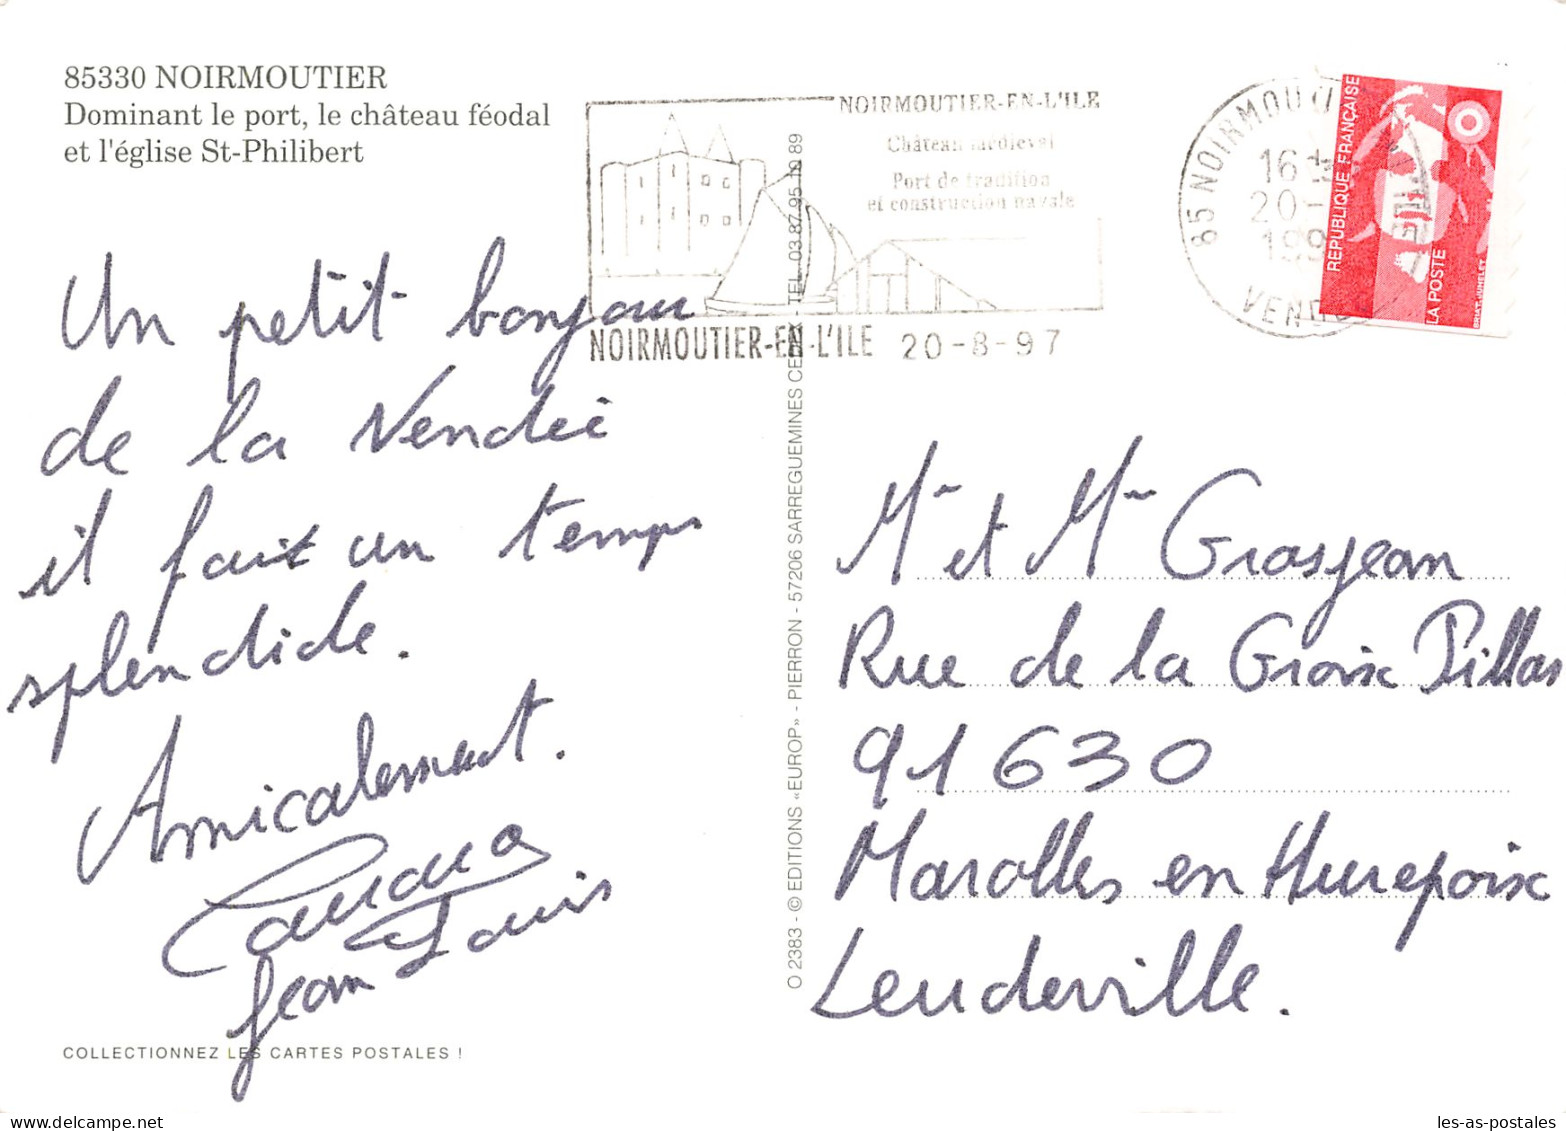 85330 NOIRMOUTIER
Dominant le port, le château féodal
et l'église St-Philibert
NOIRMOUTIER-EN-L'ILE
Château médiéval
Port de tradition
et construction navale
NOIRMOUTIER-EN-L'ILE 20-8-97
85 NOIRMOU
16
20-
199
VEND
REPUBLIQUE FRANÇAISE
LA POSTE
Un petit bonjour
de la Vendée
il fait un temps
splendide.
Amicalement.
Jean Louis
O 2383 - © EDITIONS «EUROP» - PIERRON - 57206 SARREGUEMINES CEDEX - TEL. 03 87 95 10 89
Mr et Mme Grosjean
Rue de la Croix Pillas
91630
Marolles en Hurepoix
Leudeville.
COLLECTIONNEZ LES CARTES POSTALES !
delcampe.net
les-as-postales